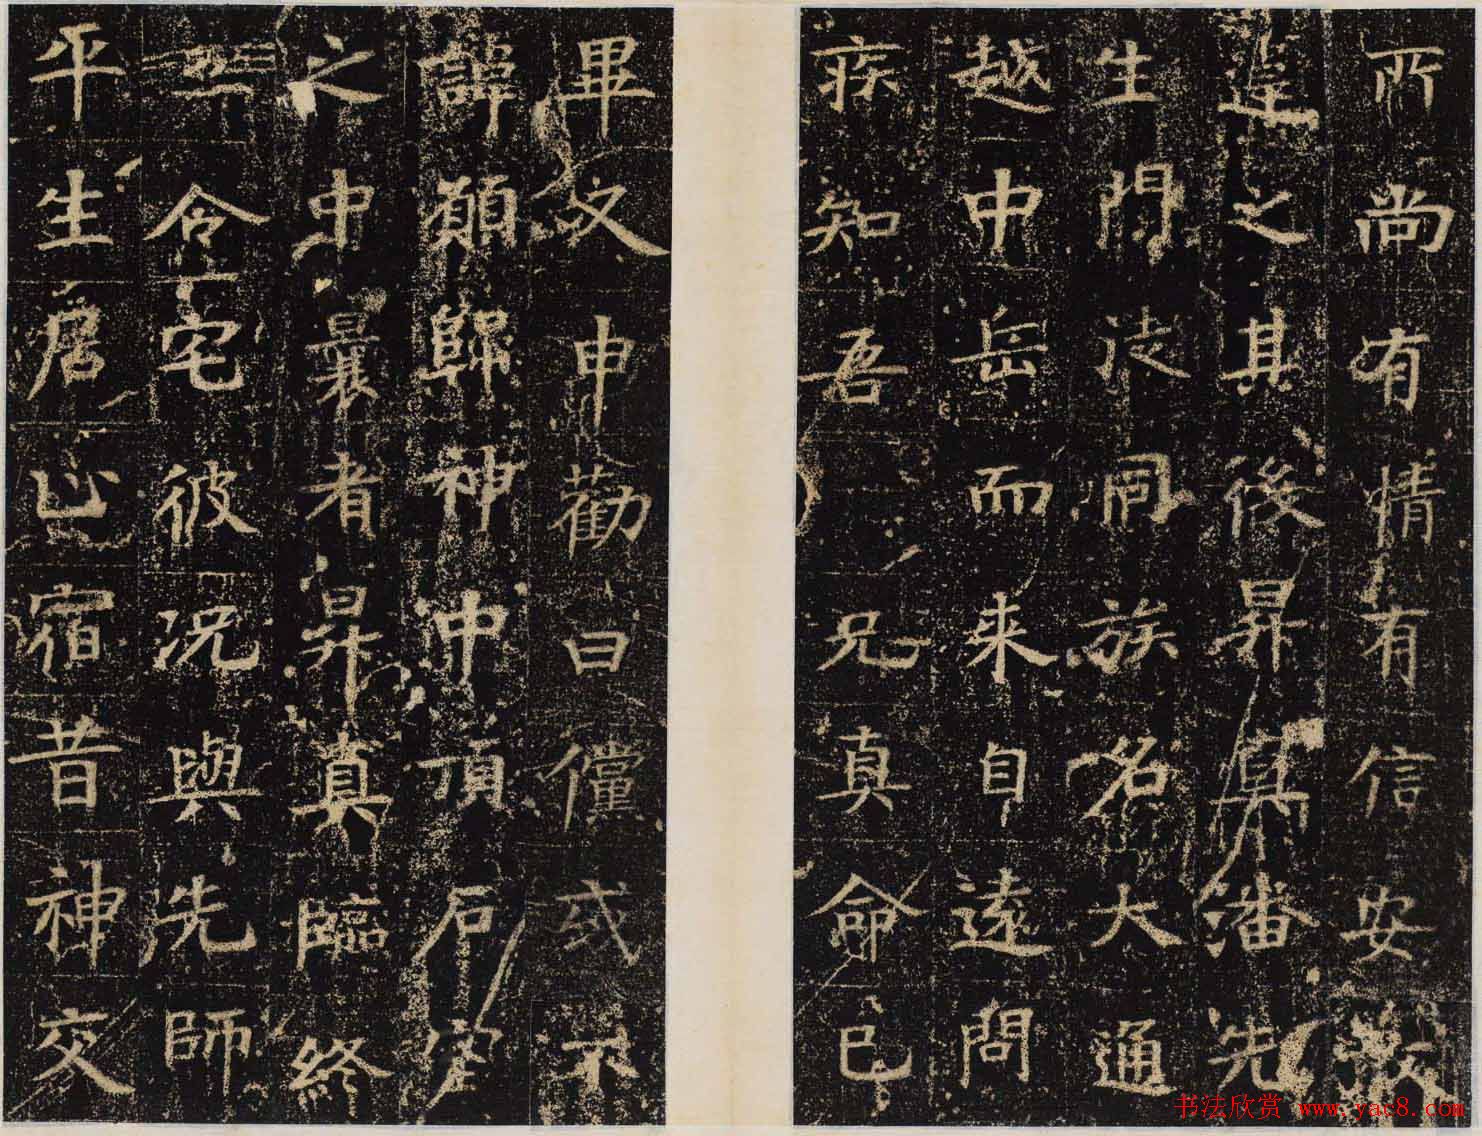 所尚有情有信安敢
違之其後昇真潘先
生門徒同族名大通
越中岳而来自遠問
疾知吾兄真命已
畢又申勸曰儻或不
諱願歸神中頂石室
之中曩者昇真臨終
令宅彼況與先師
平生居止宿昔神交
书法欣赏 www.yac8.com